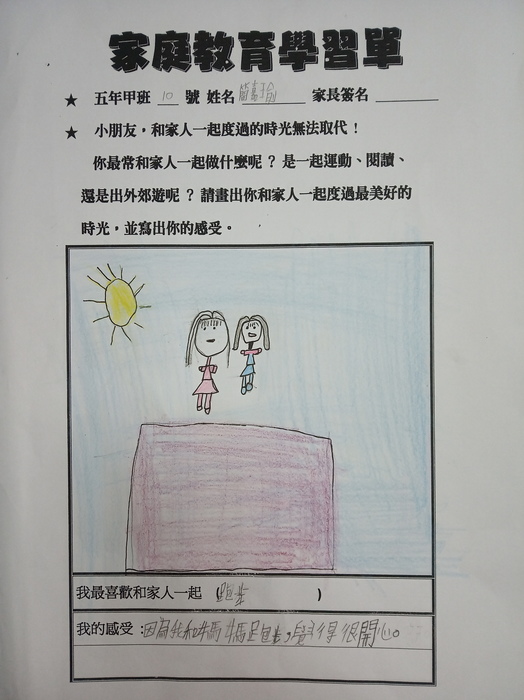 家庭教育學習單
★ 五年甲班 10 號 姓名 簡嘉瑜 家長簽名
★ 小朋友，和家人一起度過的時光無法取代！
你最常和家人一起做什麼呢？是一起運動、閱讀、
還是出外郊遊呢？請畫出你和家人一起度過最美好的
時光，並寫出你的感受。
我最喜歡和家人一起（跑步）
我的感受：因為我和媽媽跑步，覺得很開心。